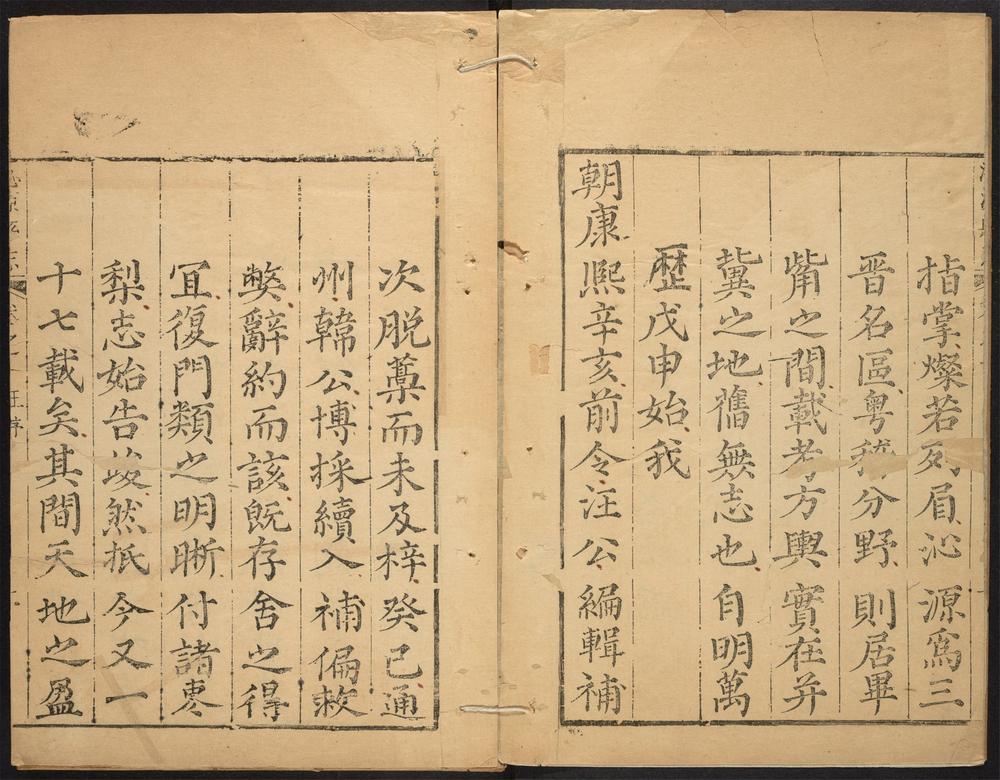 指掌燦若列眉沁源爲三
晋名區粤稽分野則居畢
觜之間載考方輿實在并
冀之地舊無志也自明萬
歷戊申始我
朝康熙辛亥前令汪公編輯補
次脱藁而未及梓癸巳通
州韓公博採續入補偏救
獘辭約而該既存舍之得
冝復門類之明晰付諸棗
梨志始告竣然抵今又一
十七載矣其間天地之盈
沁源縣志 卷之一 汪序